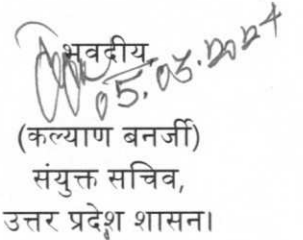 भवदीय,
05.03.2024
(कल्याण बनर्जी)
संयुक्त सचिव,
उत्तर प्रदेश शासन।